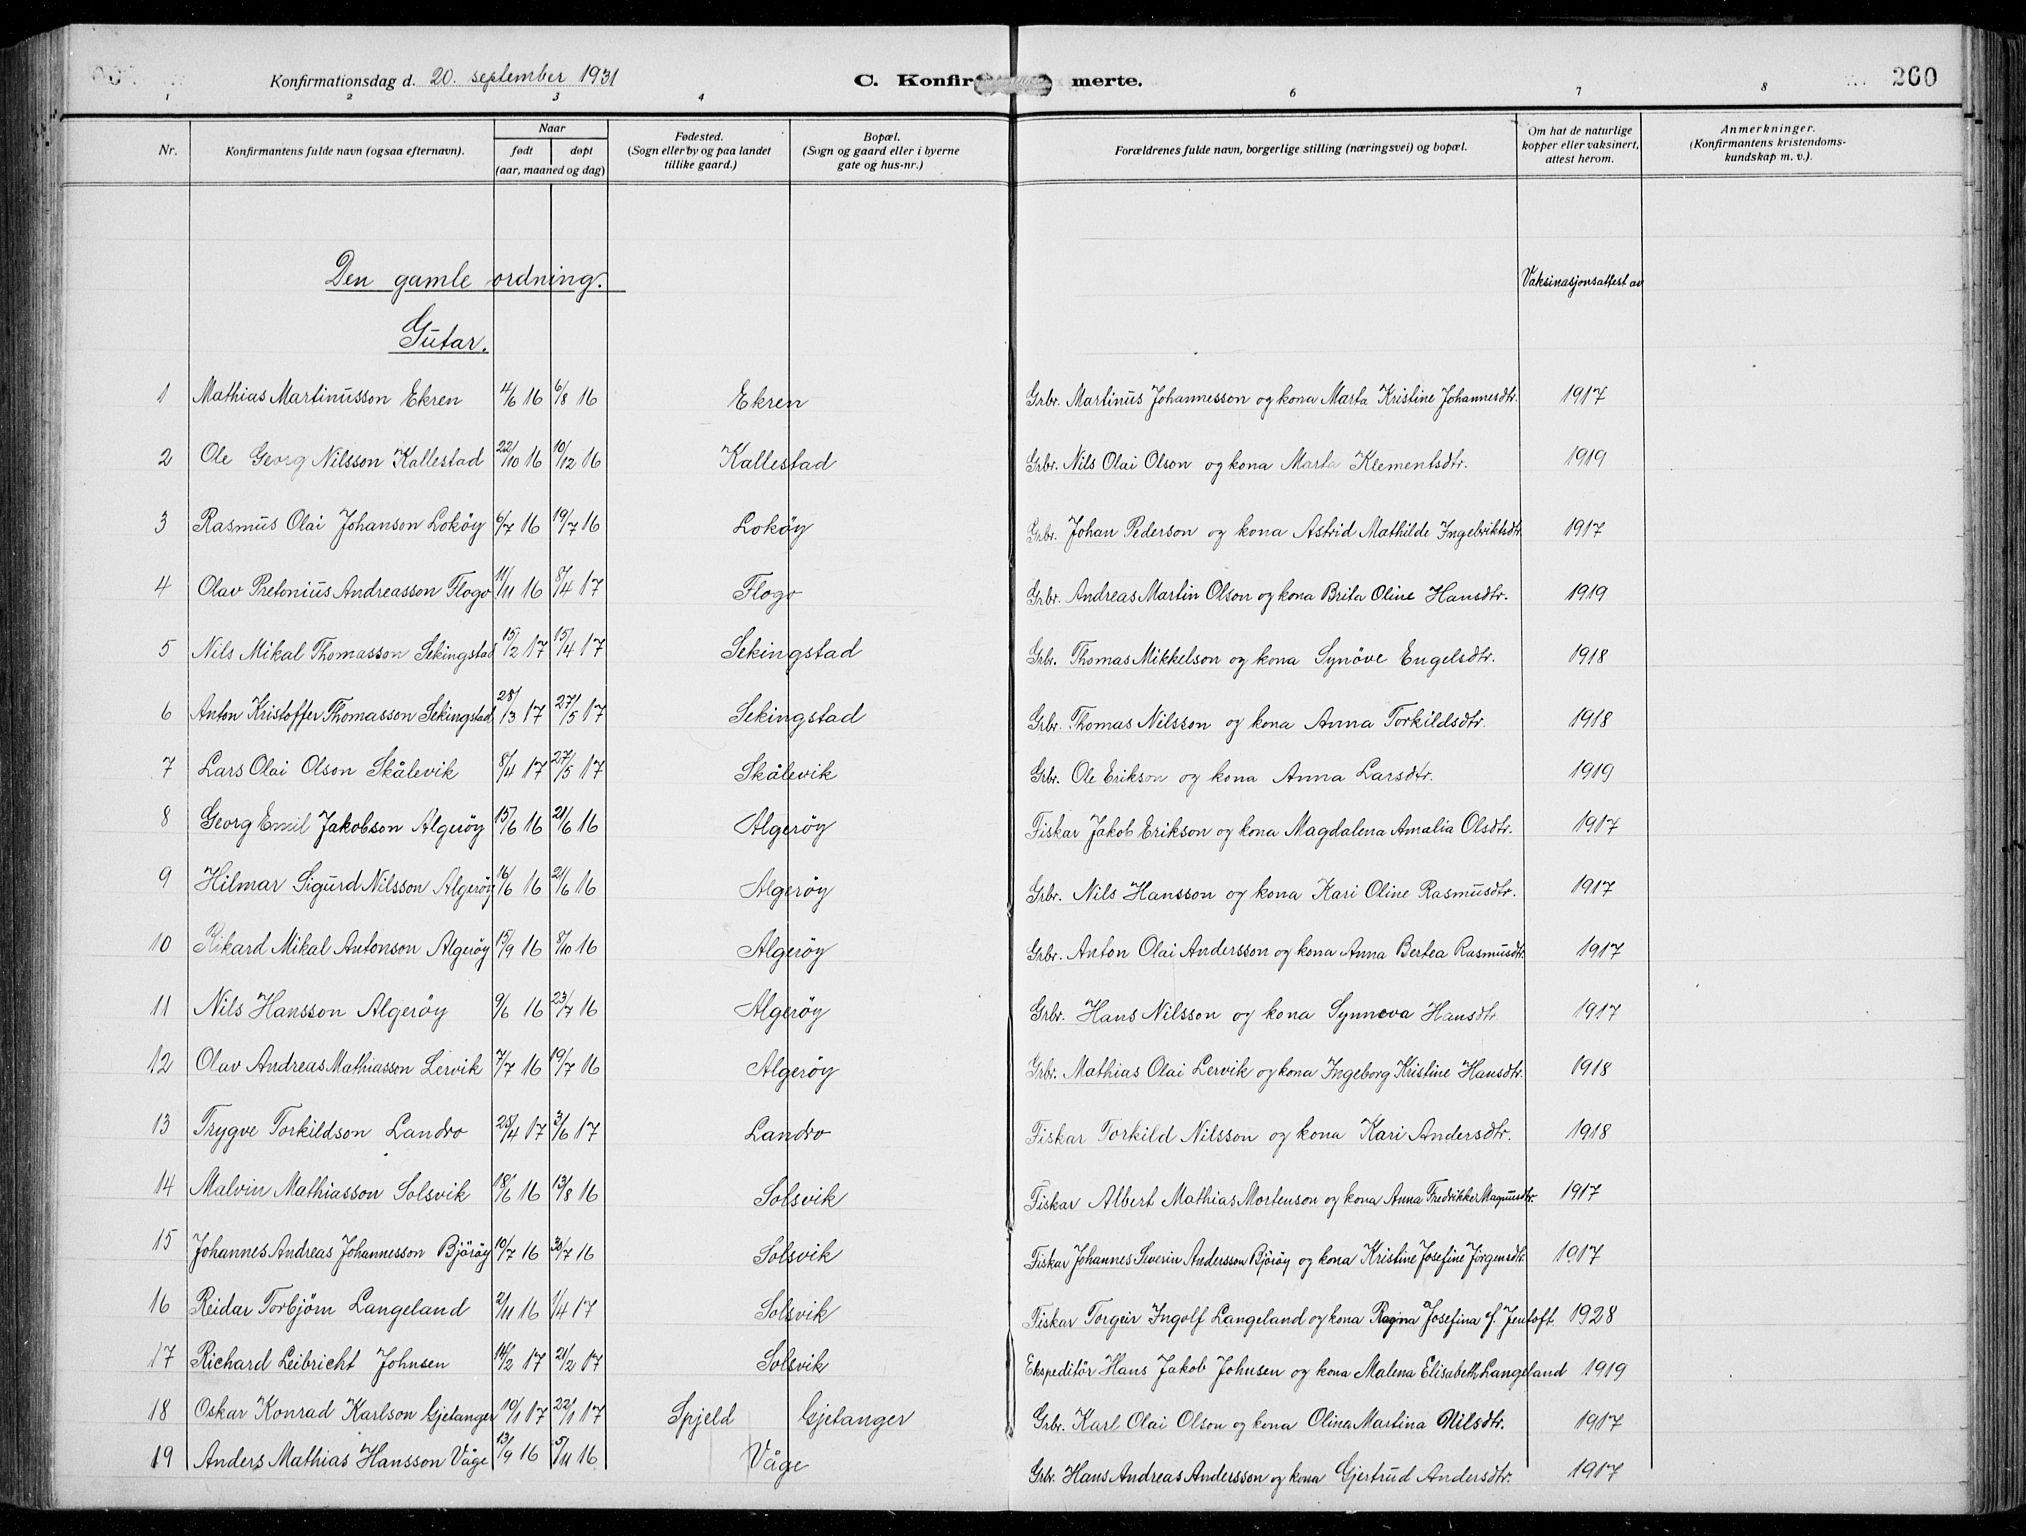 Konfirmationsdag d. 20. september 1931 C. Konfir merte. 260
1 2 3 4 6 7 8
Nr. Konfirmantens fulde navn (ogsaa efternavn). Naar født døpt (aar, maaned og dag) Fødested. (Sogn eller by og paa landet tillike gaard.) Bopæl. (Sogn og gaard eller i byerne gate og hus-nr.) Forældrenes fulde navn, borgerlige stilling (næringsvei) og bopæl. Om hat de naturlige kopper eller vaksinert, attest herom. Anmerkninger. (Konfirmantens kristendoms- kundskap m. v.).
Den gamle ordning. Vaksinasjonsattest av
Gutar.
1 Mathias Martinusson Ekren 4/6 16 6/8 16 Ekren Grbr. Martinus Johannesson og kona Marta Kristine Johannesdtr. 1917
2 Ole Georg Nilsson Kallestad 22/10 16 10/12 16 Kallestad Grbr. Nils Olai Olson og kona Marta Klementsdtr. 1919
3 Rasmus Olai Johanson Lokøy 6/7 16 19/7 16 Lokøy Grbr. Johan Pederson og kona Astrid Mathilde Ingebriktsdtr. 1917
4 Olav Pretonius Andreasson Flogo 11/11 16 8/4 17 Flogo Grbr. Andreas Martin Olson og kona Brita Oline Hansdtr. 1919
5 Nils Mikal Thomasson Sekingstad 15/2 17 15/4 17 Sekingstad Grbr. Thomas Mikkelson og kona Synöve Engelsdtr. 1918
6 Anton Kristoffer Thomasson Sekingstad 28/3 17 27/5 17 Sekingstad Grbr. Thomas Nilsson og kona Anna Torkildsdtr. 1918
7 Lars Olai Olson Skålevik 8/4 17 27/5 17 Skålevik Grbr. Ole Erikson og kona Anna Larsdtr. 1919
8 Georg Emil Jakobson Algerøy 15/6 16 21/6 16 Algerøy Fiskar Jakob Erikson og kona Magdalena Amalia Olsdtr. 1917
9 Hilmar Sigurd Nilsson Algerøy 16/6 16 21/6 16 Algerøy Grbr. Nils Hansson og kona Kari Oline Rasmusdtr. 1917
10 Rikard Mikal Antonson Algerøy 15/9 16 8/10 16 Algerøy Grbr. Anton Olai Andersson og kona Anna Bertea Rasmusdtr. 1917
11 Nils Hansson Algerøy 9/6 16 23/7 16 Algerøy Grbr. Hans Nilsson og kona Synneva Hansdtr. 1917
12 Olav Andreas Mathiasson Lervik 7/7 16 19/7 16 Algerøy Grbr. Mathias Olai Lervik og kona Ingeborg Kristine Hansdtr. 1918
13 Trygve Torkildson Landro 28/4 17 3/6 17 Landro Fiskar Torkild Nilsson og kona Kari Andersdtr. 1918
14 Malvin Mathiasson Solsvik 18/6 16 13/8 16 Solsvik Fiskar Albert Mathias Mortenson og kona Anna Fredrikke Magnusdtr. 1917
15 Johannes Andreas Johannesson Bjørøy 10/7 16 30/7 16 Solsvik Fiskar Johannes Severin Andersson Bjørøy og kona Kristine Josefine Jörgensdtr. 1917
16 Reidar Torbjørn Langeland 2/11 16 1/4 17 Solsvik Fiskar Torgeir Ingolf Langeland og kona Ragna Josefina f. Jentoft. 1928
17 Richard Leibricht Johnsen 14/2 17 21/2 17 Solsvik Ekspeditör Hans Jakob Johnsen og kona Malena Elisabeth Langeland 1919
18 Oskar Konrad Karlson Gjetanger 10/1 17 22/1 17 Spjeld Gjetanger Grbr. Karl Olai Olson og kona Olina Martina Nilsdtr. 1917
19 Anders Mathias Hansson Våge 13/9 16 5/11 16 Våge Grbr. Hans Andreas Andersson og kona Gjertrud Andersdtr. 1917